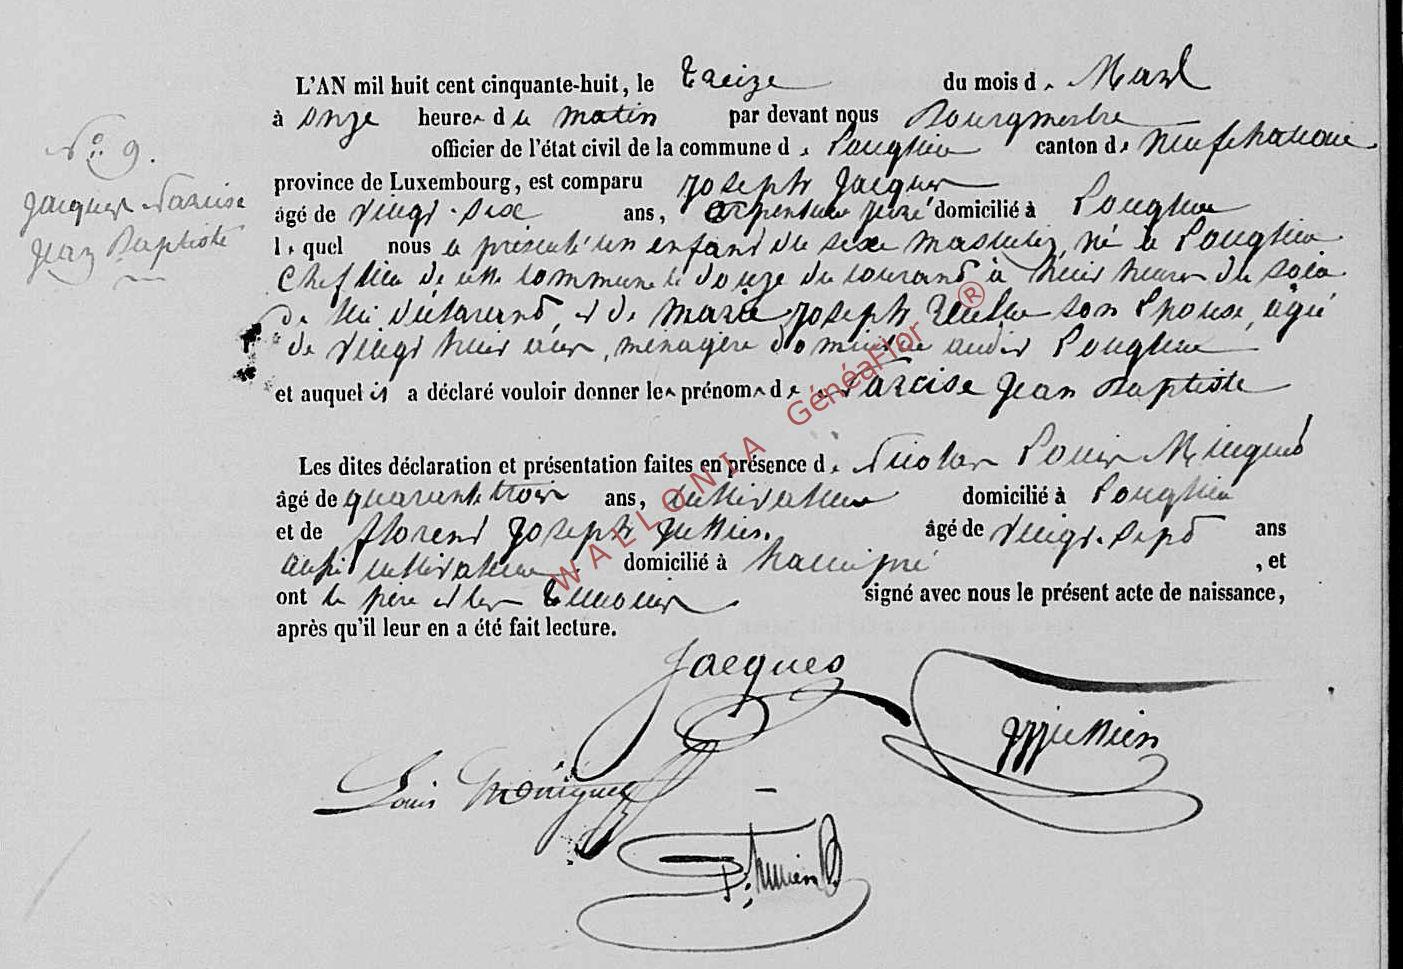 L'AN mil huit cent cinquante-huit, le treize du mois de Mars
à onze heures du matin par devant nous Bourgmestre
officier de l'état civil de la commune de Longlier canton de Neufchateau
province de Luxembourg, est comparu Joseph Jacques
âgé de vingt-six ans, arpenteur juré domicilié à Longlier
lequel nous a présenté un enfant du sexe masculin, né à Longlier
Chef lieu de cette commune le douze du courant à huit heures du soir
de lui déclarant, et de Marie Joseph son Epouse, agée
de vingt huit ans, ménagère domiciliée audit Longlier
et auquel il a déclaré vouloir donner les prénoms de Narcise Jean Baptiste
N° 9.
Jacques Narcise
Jean Baptiste
Les dites déclaration et présentation faites en présence de Nicolas Louis
âgé de quarante trois ans, cultivateur domicilié à Longlier
et de florent Joseph Jullien. âgé de vingt-sept ans
aussi cultivateur domicilié à hamipré, et
ont le père et les témoins signé avec nous le présent acte de naissance,
après qu'il leur en a été fait lecture.
Jacques
Jullien
Louis
WALLONIA GénéaFlor ®